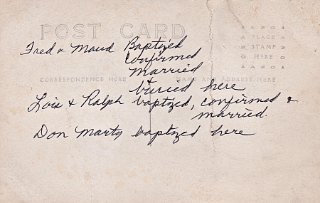 POST CARD
PLACE
STAMP
HERE
Fred & Maud Baptized
confirmed
married
&
buried here
CORRESPONDENCE HERE
NAME AND ADDRESS HERE
Lois & Ralph baptized, confirmed &
married
Don Marty baptized here